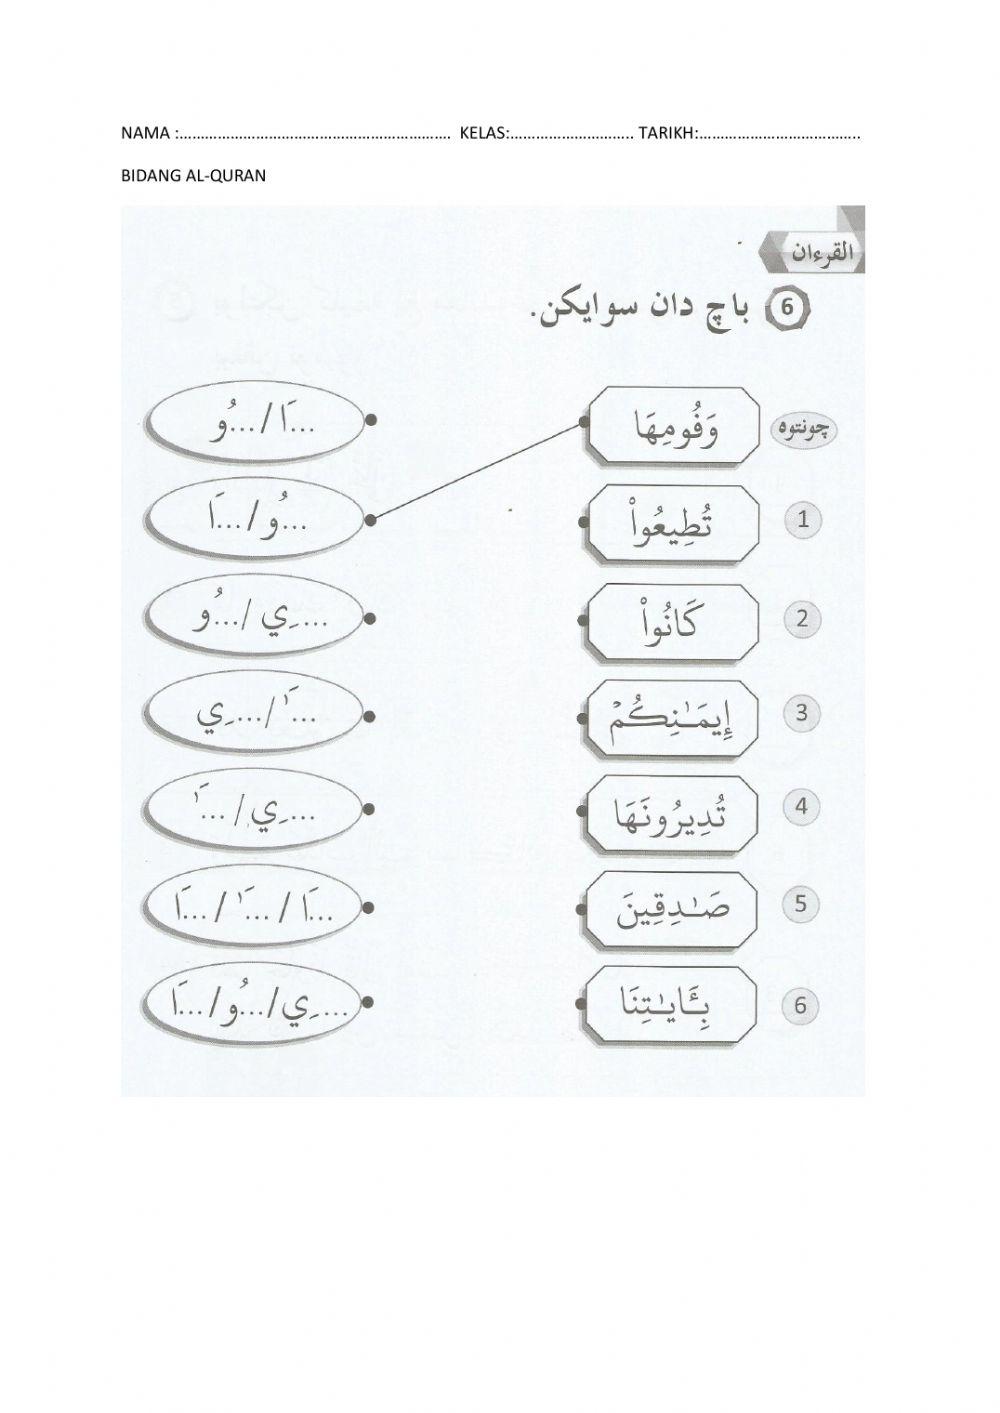 NAMA :................................................................ KELAS:............................. TARIKH:......................................
BIDANG AL-QURAN
القرءان
6 باچ دان سوايكن.
چونتوه وَفُومِهَا ...َا / ...ُو
1 تُطِيعُواْ ...ُو / ...َا
2 كَانُواْ ...ِي / ...ُو
3 إِيمَـٰنِكُمْ ...َٰ / ...ِي
4 تُدِيرُونَهَا ...ِي / ...َٰ
5 صَـٰدِقِينَ ...َا / ...َٰ / ...َا
6 بِـَٔايَـٰتِنَا ...ِي / ...ُو / ...َا